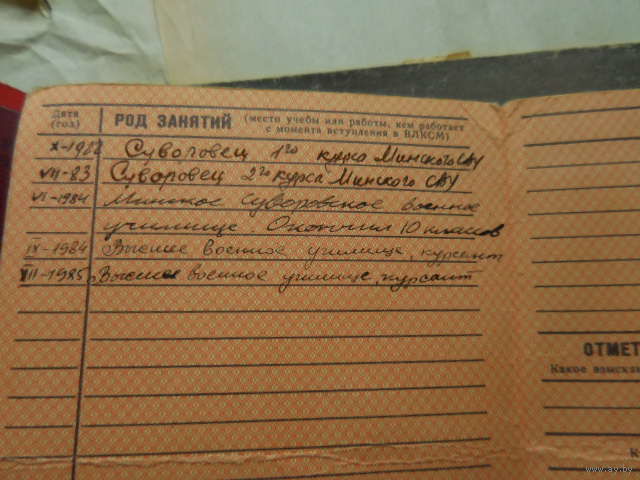 Дата (год)
РОД ЗАНЯТИЙ (место учебы или работы, кем работает с момента вступления в ВЛКСМ)
X-1982 Суворовец 1го курса Минского СВУ
VIII-83 Суворовец 2го курса Минского СВУ
VI-1984 Минское Суворовское военное
училище. Окончил 10 классов
IX-1984 Высшее военное училище, курсант
VIII-1985 Высшее военное училище, курсант
ОТМЕТ
Какое взыскан
www.ay.by